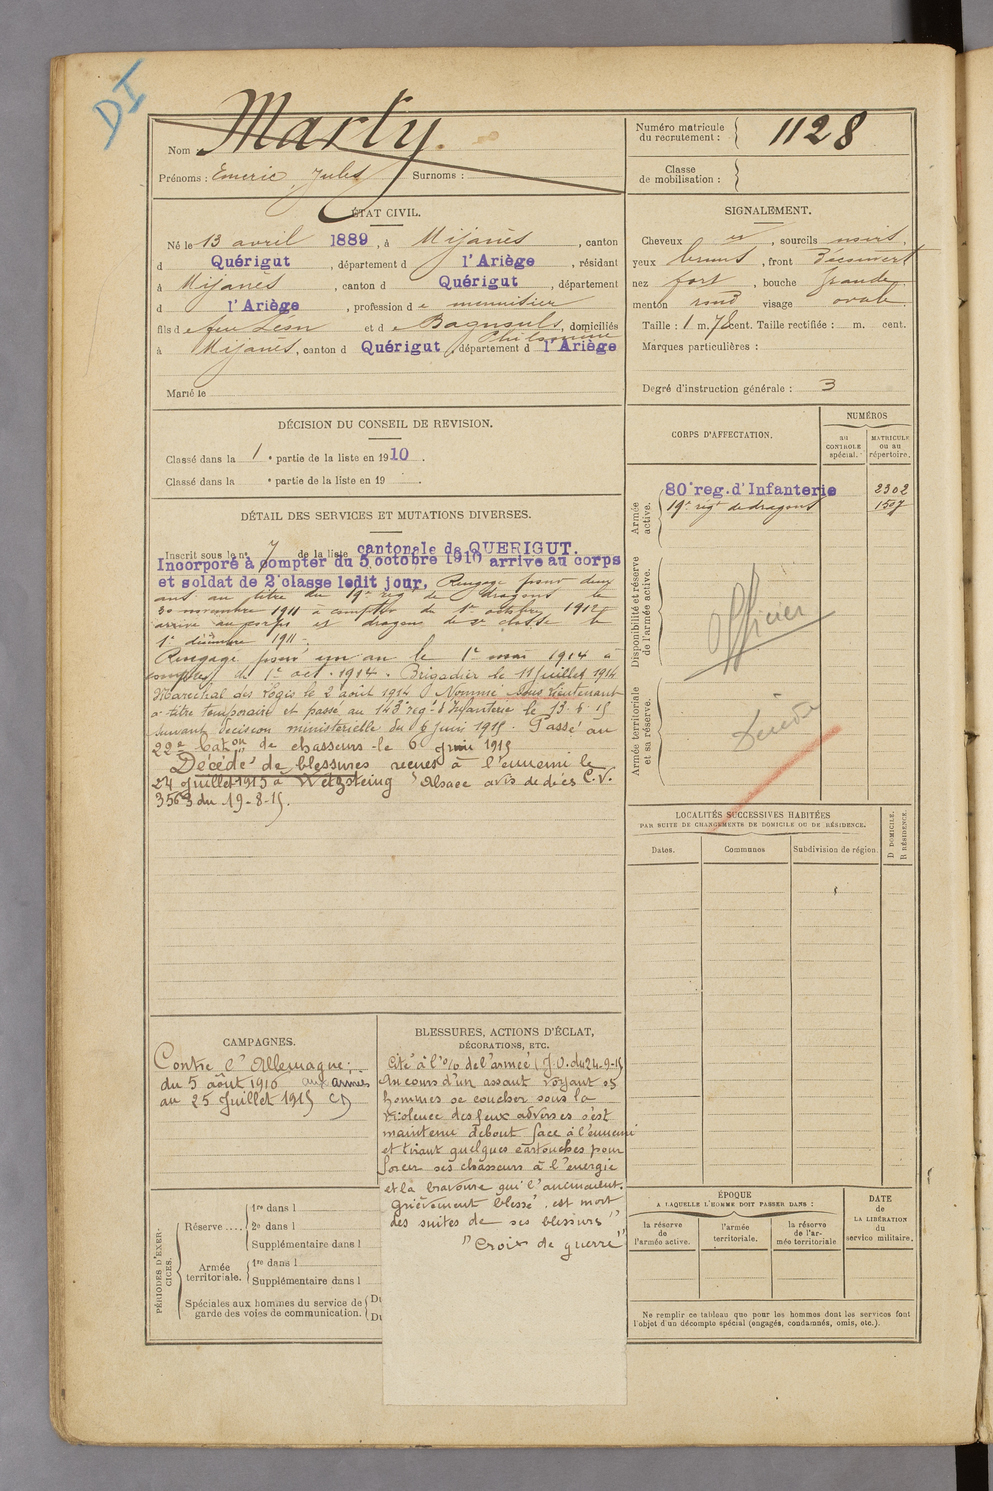 DI
Nom : Marty.
Prénoms : Emeric, Jules Surnoms :
Numéro matricule du recrutement : 1128
Classe de mobilisation :
ÉTAT CIVIL.
Né le 13 avril 1889, à Mijanès, canton
d Quérigut, département d l'Ariège, résidant
à Mijanès, canton d Quérigut, département
d l'Ariège, profession de menuisier
fils de feu Léon et de Bagnouls, domiciliés
Philomène
à Mijanès, canton d Quérigut, département d l'Ariège
Marié le
SIGNALEMENT.
Cheveux , sourcils noirs,
yeux bruns, front Découvert
nez fort, bouche Grande
menton rond visage ovale.
Taille : 1 m. 78 cent. Taille rectifiée : m. cent.
Marques particulières :
Degré d'instruction générale : 3
DÉCISION DU CONSEIL DE REVISION.
Classé dans la 1e partie de la liste en 1910.
Classé dans la e partie de la liste en 19 .
DÉTAIL DES SERVICES ET MUTATIONS DIVERSES.
Inscrit sous le n° 7 de la liste cantonale de QUERIGUT.
Incorporé à compter du 5 octobre 1910 arrivé au corps
et soldat de 2e classe ledit jour, Rengagé pour deux
ans au titre du 19e rég de dragons le
30 novembre 1911 à compter du 1er octobre 1912,
arrivé au corps et dragon de 2e classe le
1er décembre 1911.
Rengagé pour un an le 1er mai 1914 à
compter du 1er oct. 1914. Brigadier le 11 juillet 1914
Maréchal des Logis le 2 août 1914. Nommé sous lieutenant
à titre temporaire et passé au 143e rég. d'Infanterie le 13.6.15
suivant décision ministérielle du 6 juin 1915. Passé au
22e baton de chasseurs le 6 juin 1915
Décédé de blessures reçues à l'ennemi le
24 juillet 1915 à Wetzsteing Alsace avis de décès C.V.
3563 du 19-8-15.
CORPS D'AFFECTATION.
NUMÉROS
au CONTROLE spécial.
MATRICULE ou au répertoire.
Armée active.
80e reg. d'Infanterie 2302
19e régt de dragons 1507
Disponibilité et réserve de l'armée active.
Officier
Armée territoriale et sa réserve.
Décédé
LOCALITÉS SUCCESSIVES HABITÉES
PAR SUITE DE CHANGEMENTS DE DOMICILE OU DE RÉSIDENCE.
Dates. Communes Subdivision de région. D DOMICILE. R RÉSIDENCE.
CAMPAGNES.
Contre l'Allemagne:
du 5 août 1916 aux armées
au 25 juillet 1915 CD
BLESSURES, ACTIONS D'ÉCLAT,
DÉCORATIONS, ETC.
Cité à l'o/o de l'armée (J.O. du 24-9-15
Au cours d'un assaut voyant ses
hommes se coucher sous la
violence des feux adverses s'est
maintenu debout face à l'ennemi
et tirant quelques cartouches pour
forcer ses chasseurs à l'énergie
et la bravoure qui l'animaient.
Grièvement blessé, est mort
des suites de ses blessures"
"Croix de guerre"
PÉRIODES D'EXERCICES.
Réserve....
1re dans l
2e dans l
Supplémentaire dans l
Armée territoriale.
1re dans l
Supplémentaire dans l
Spéciales aux hommes du service de garde des voies de communication.
ÉPOQUE
A LAQUELLE L'HOMME DOIT PASSER DANS :
la réserve de l'armée active.
l'armée territoriale.
la réserve de l'armée territoriale
DATE de LA LIBÉRATION du service militaire.
Ne remplir ce tableau que pour les hommes dont les services font
l'objet d'un décompte spécial (engagés, condamnés, omis, etc.).